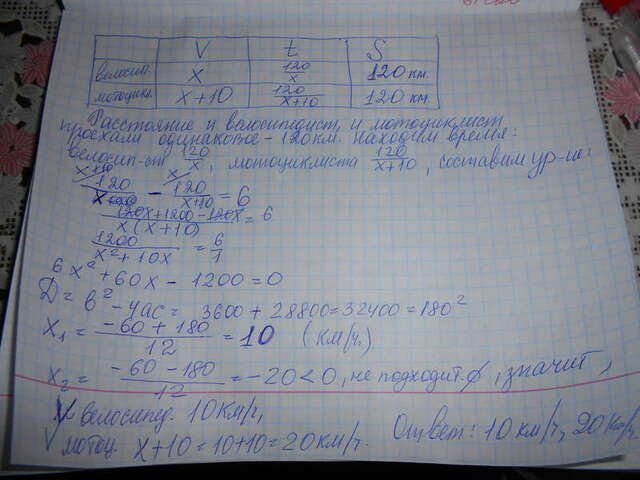 V t S
велосип. x 120/x 120 км.
мотоцикл. x+10 120/x+10 120 км.
Расстояние и велосипедист, и мотоциклист
проехали одинаковое - 120км. Находим время:
велосип-ст 120/x, мотоциклиста 120/x+10, составим ур-ие:
120/x - 120/x+10 = 6
120x+1200-120x/x(x+10) = 6
1200/x²+10x = 6/1
6x²+60x-1200=0
D = b²-4ac = 3600+28800=32400=180²
x₁ = -60+180/12 = 10 (км/ч.)
x₂ = -60-180/12 = -20<0, не подходит ∅, значит,
V велосипед. 10 км/ч,
V мотоц. x+10=10+10=20км/ч. Ответ: 10 км/ч, 20 км/ч.